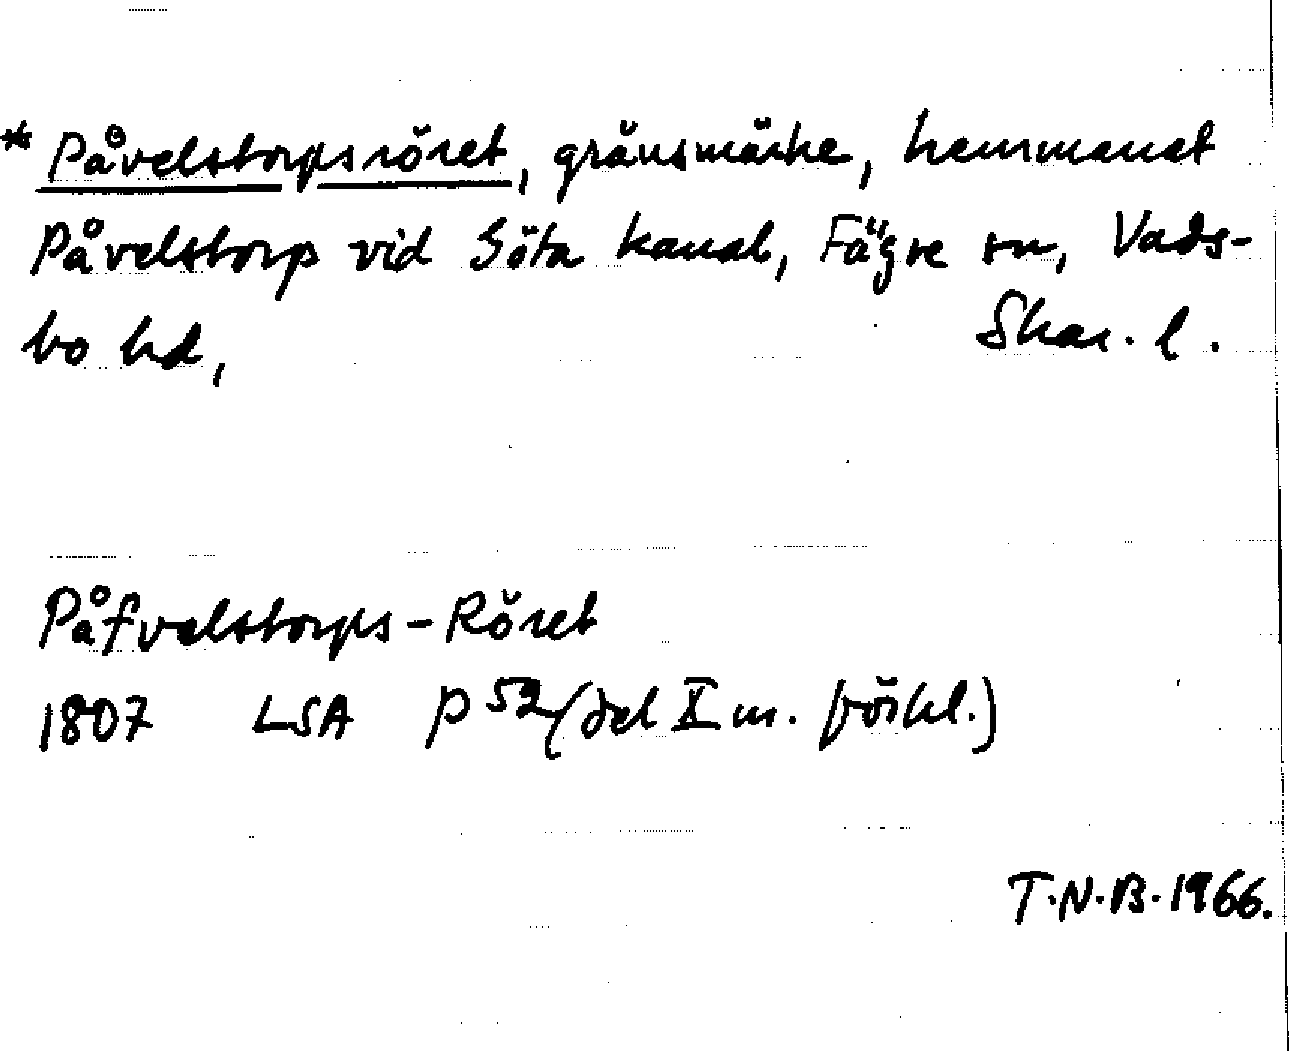 * Påvelstorpsröset, gränsmärke, hemmanet
Påvelstorp vid Göta kanal, Fägre sn, Vads-
bo hd, Skar. l.
Påfvelstorps-Röset
1807 LSA P 52 (del X m. förkl.)
T.N.B. 1966.